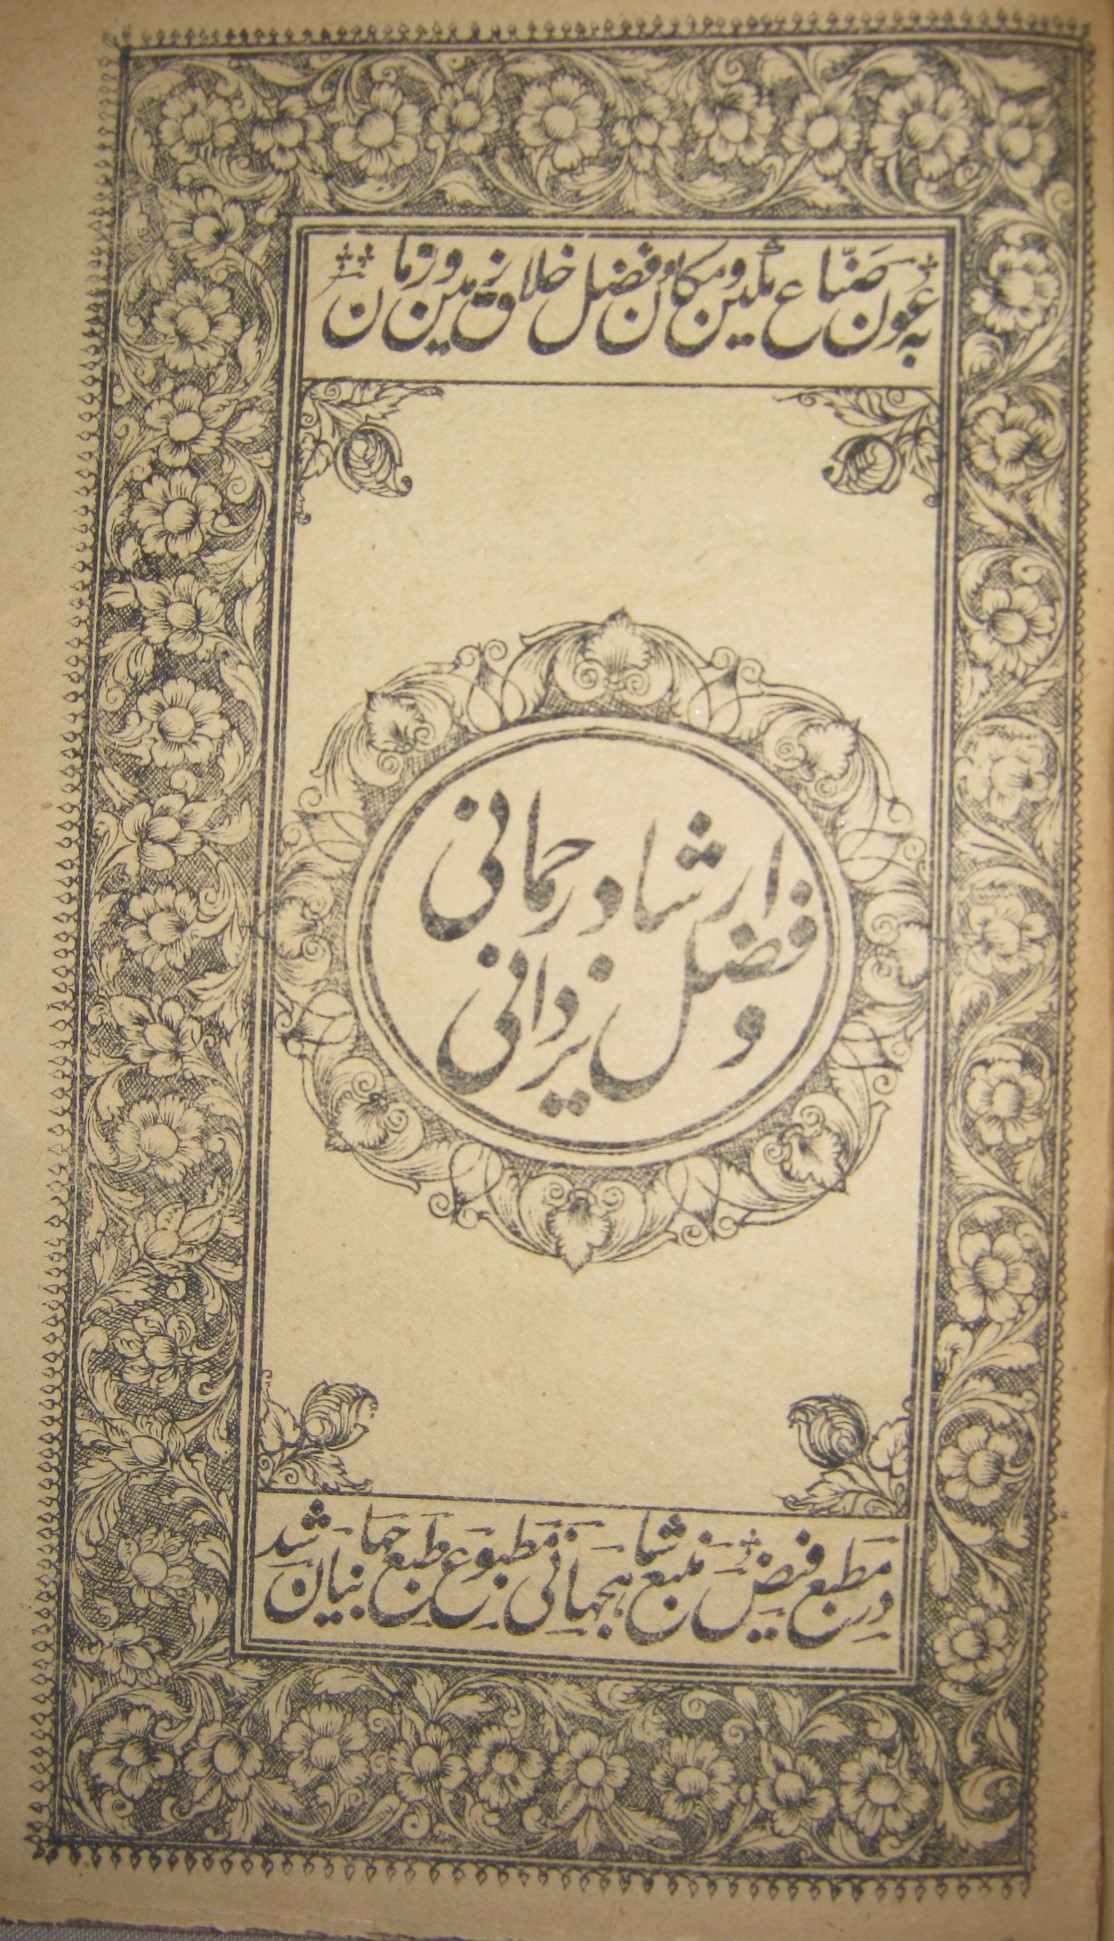 به عون صنّاع مکین و مکان و فضل خلاق زمین و زمان
ارشاد رحمانی
و فضل یزدانی
در مطبع فیض منبع شاہجہانی مطبوع طبع جہانیان شد